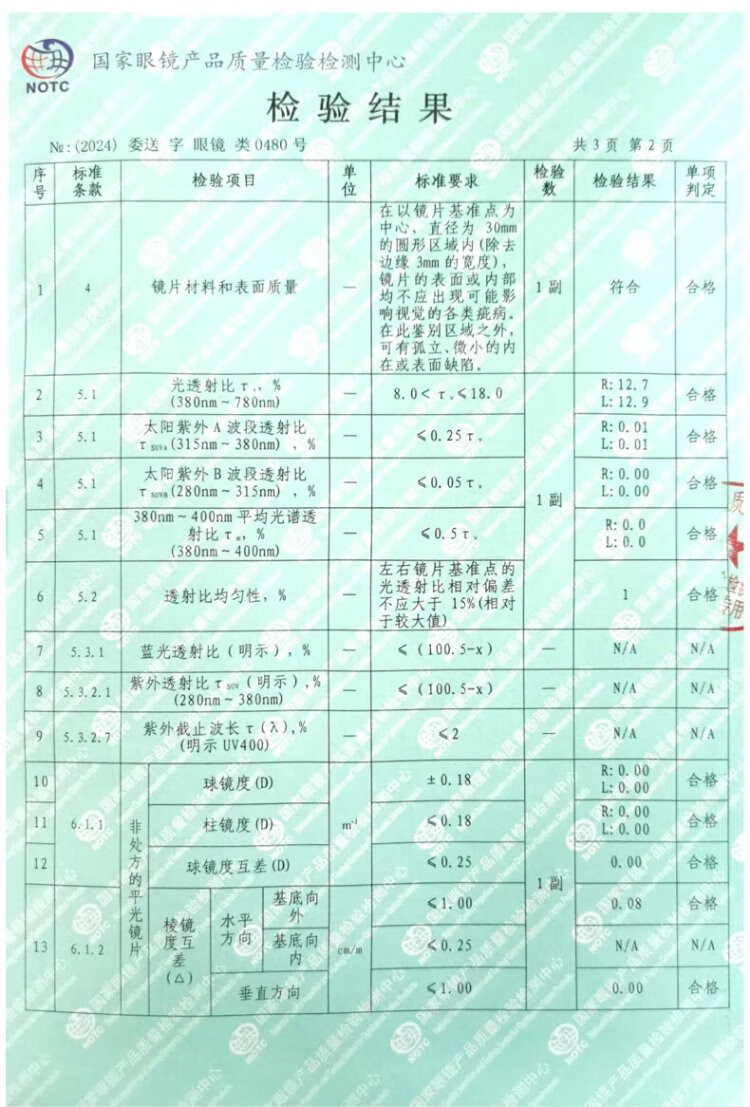 NOTC
国家眼镜产品质量检验检测中心
检验结果
№:(2024) 委送 字 眼镜 类0480号
共 3 页 第 2 页
序号 标准条款 检验项目 单位 标准要求 检验数 检验结果 单项判定
1 4 镜片材料和表面质量 — 在以镜片基准点为中心，直径为 30mm 的圆形区域内(除去边缘 3mm 的宽度)，镜片的表面或内部均不应出现可能影响视觉的各类疵病。在此鉴别区域之外，可有孤立、微小的内在或表面缺陷。 1 副 符合 合格
2 5.1 光透射比 τv, % (380nm~780nm) — 8.0< τv≤18.0 1 副 R:12.7 L:12.9 合格
3 5.1 太阳紫外 A 波段透射比 τSUVA(315nm~380nm) , % — ≤0.25 τv R:0.01 L:0.01 合格
4 5.1 太阳紫外 B 波段透射比 τSUVB(280nm~315nm) , % — ≤0.05 τv R:0.00 L:0.00 合格
5 5.1 380nm~400nm 平均光谱透射比 τ, % (380nm~400nm) — ≤0.5 τv R:0.0 L:0.0 合格
6 5.2 透射比均匀性, % — 左右镜片基准点的光透射比相对偏差不应大于 15%(相对于较大值) 1 合格
7 5.3.1 蓝光透射比（明示）, % — ≤（100.5-x） — N/A N/A
8 5.3.2.1 紫外透射比 τSUV（明示）,% (280nm~380nm) — ≤（100.5-x） — N/A N/A
9 5.3.2.7 紫外截止波长 τ(λ),% (明示 UV400) — ≤2 — N/A N/A
10 6.1.1 非处方的平光镜片 球镜度(D) m⁻¹ ±0.18 1 副 R:0.00 L:0.00 合格
11 柱镜度(D) ≤0.18 R:0.00 L:0.00 合格
12 球镜度互差(D) ≤0.25 0.00 合格
13 6.1.2 棱镜度互差(△) 水平方向 基底向外 cm/m ≤1.00 0.08 合格
基底向内 ≤0.25 N/A N/A
垂直方向 ≤1.00 0.00 合格